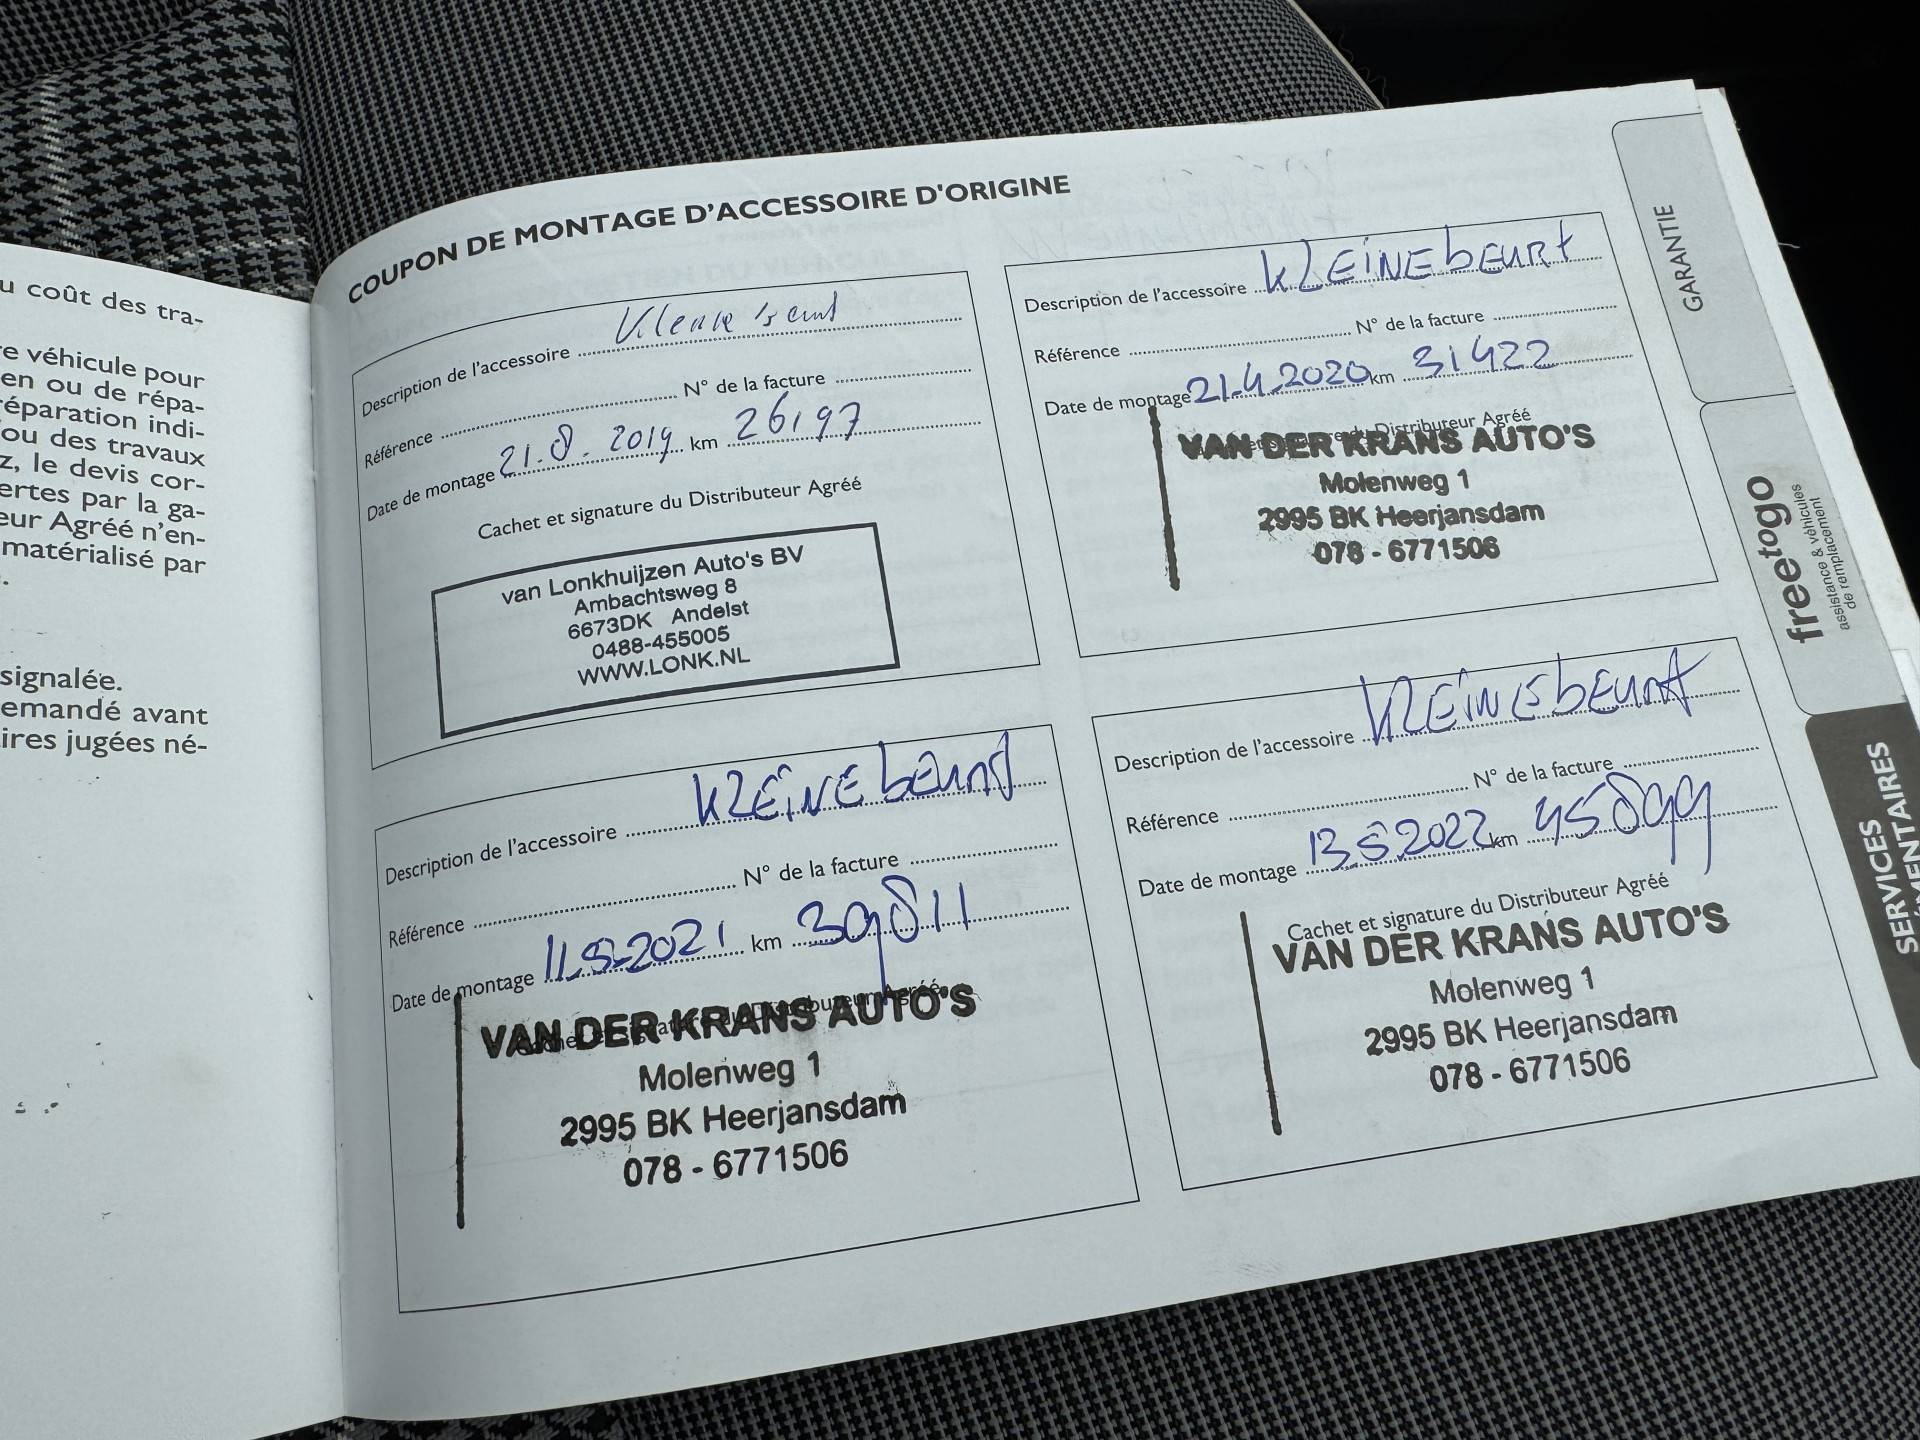 u coût des tra-
re véhicule pour
en ou de répa-
réparation indi-
ou des travaux
z, le devis cor-
ertes par la ga-
eur Agréé n'en-
matérialisé par
signalée.
emandé avant
ires jugées né-
COUPON DE MONTAGE D'ACCESSOIRE D'ORIGINE
Description de l'accessoire Kleine beurt
Référence N° de la facture
Date de montage 21.8.2019 km 26197
Cachet et signature du Distributeur Agréé
van Lonkhuijzen Auto's BV
Ambachtsweg 8
6673DK Andelst
0488-455005
WWW.LONK.NL
Description de l'accessoire KLEINE bEURt
Référence N° de la facture
Date de montage 21.4.2020 km 31422
Cachet et signature du Distributeur Agréé
VAN DER KRANS AUTO'S
Molenweg 1
2995 BK Heerjansdam
078 - 6771506
Description de l'accessoire KLEINE bEURt
Référence N° de la facture
Date de montage 11.5.2021 km 39811
Cachet et signature du Distributeur Agréé
VAN DER KRANS AUTO'S
Molenweg 1
2995 BK Heerjansdam
078 - 6771506
Description de l'accessoire KLEINE bEURt
Référence N° de la facture
Date de montage 13.5.2022 km 45899
Cachet et signature du Distributeur Agréé
VAN DER KRANS AUTO'S
Molenweg 1
2995 BK Heerjansdam
078 - 6771506
GARANTIE
freetogo
assistance & véhicules
de remplacement
SERVICES